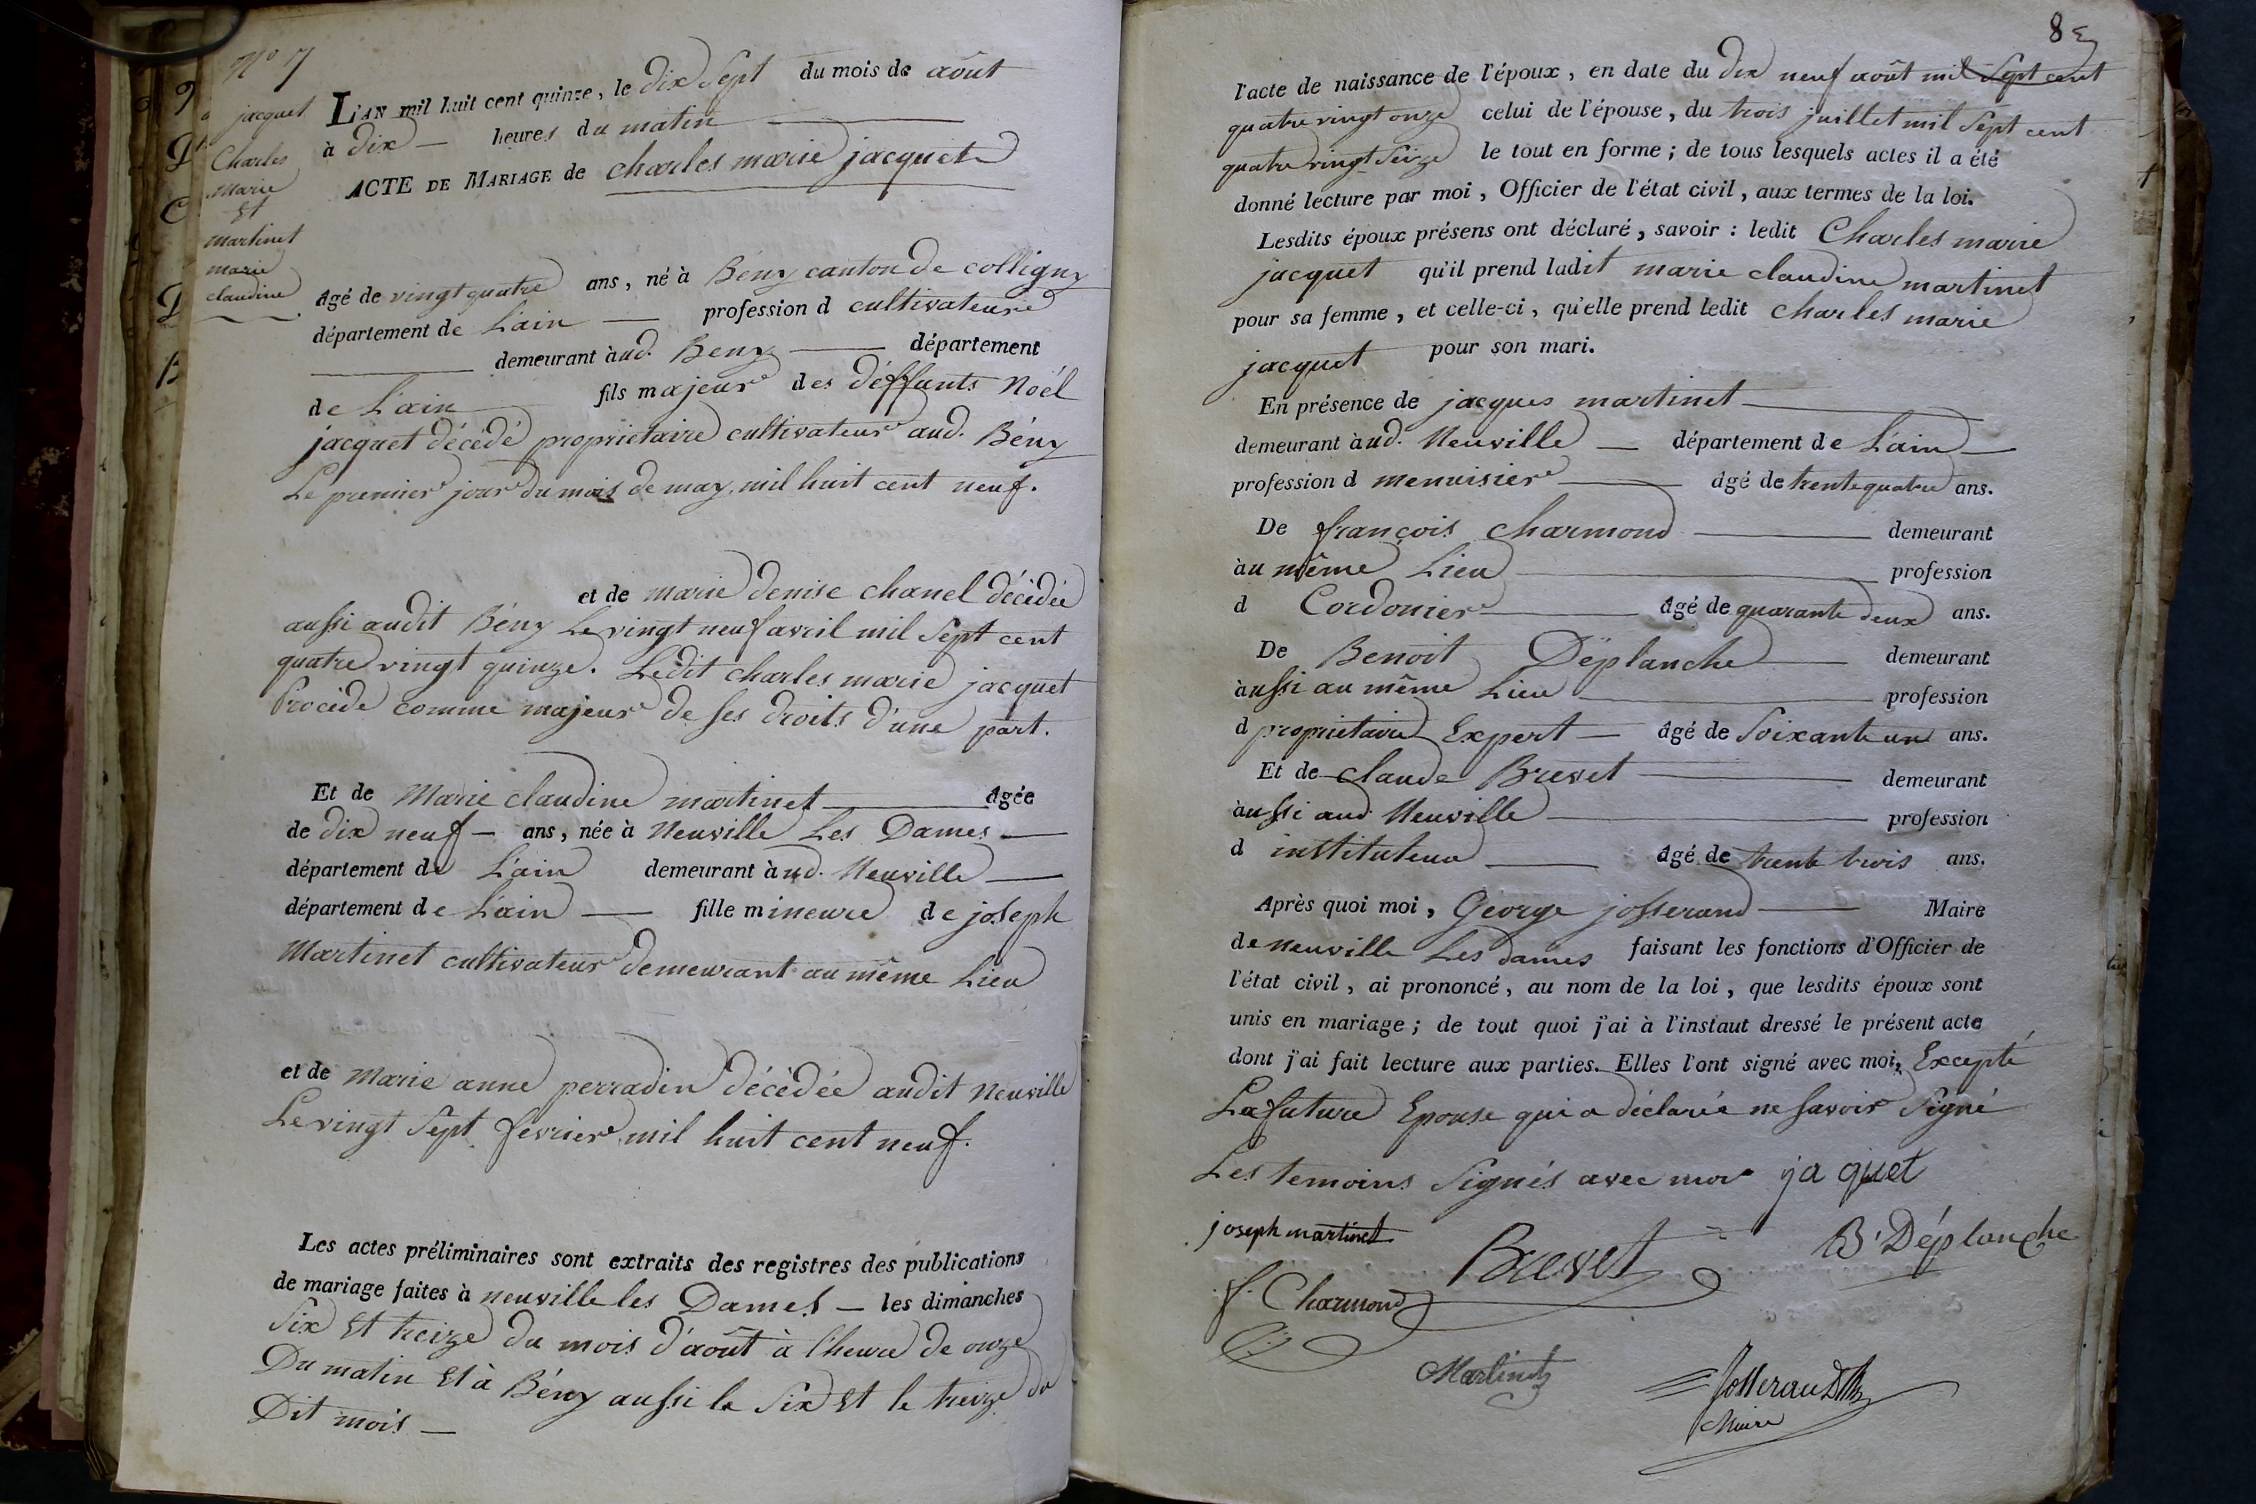 N° 7
jacquet
Charles
Marie
Et
martinet
marie
claudine
L'AN mil huit cent quinze, le dix Sept du mois de août
à dix heures du matin
ACTE DE MARIAGE de charles marie jacquet
âgé de vingt quatre ans, né à Bény canton de colligny
département de L'ain profession d cultivateur
demeurant àud. Beny département
de L'ain fils majeur des déffunts Noël
jacquet décédé propriétaire cultivateur aud. Bény
Le premier jour du mois de may, mil huit cent neuf.
et de marie denise chanel décédée
aussi audit Bény Le vingt neuf avril mil Sept cent
quatre vingt quinze. Ledit charles marie jacquet
Procède comme majeur de ses droits d'une part.
Et de Marie claudine martinet âgée
de dix neuf ans, née à Neuville Les Dames
département de L'ain demeurant àud. Neuville
département de L'ain fille mineure de joseph
Martinet cultivateur demeurant au même Lieu
et de marie anne perradin décédée audit Neuville
Le vingt Sept fevrier mil huit cent neuf.
Les actes préliminaires sont extraits des registres des publications
de mariage faites à neuville les Dames les dimanches
Six Et treize du mois d'août à l'heure de onze
Du matin Et à Bény aussi le Six Et le treize du
Dit mois
8
l'acte de naissance de l'époux, en date du dix neuf août mil Sept cent
quatre vingt onze celui de l'épouse, du trois juillet mil Sept cent
quatre vingt Seize le tout en forme ; de tous lesquels actes il a été
donné lecture par moi, Officier de l'état civil, aux termes de la loi.
Lesdits époux présens ont déclaré, savoir : ledit Charles marie
jacquet qu'il prend ladit marie claudine martinet
pour sa femme, et celle-ci, qu'elle prend ledit charles marie
jacquet pour son mari.
En présence de jacques martinet
demeurant àud. Neuville département de L'ain
profession d menuisier âgé de trente quatre ans.
De françois charmond demeurant
àu même Lieu profession
d Cordonier âgé de quarante deux ans.
De Benoit Déplanche demeurant
àussi au même Lieu profession
d propriétaire Expert âgé de Soixante un ans.
Et de claude Brevet demeurant
àussi aud Neuville profession
d instituteur âgé de trente trois ans.
Après quoi moi, George josserand Maire
de neuville Les dames faisant les fonctions d'Officier de
l'état civil, ai prononcé, au nom de la loi, que lesdits époux sont
unis en mariage ; de tout quoi j'ai à l'instaut dressé le présent acte
dont j'ai fait lecture aux parties. Elles l'ont signé avec moi, Excepté
La future Epouse qui a déclarée ne savoir Signé
Les temoins Signés avec moi jaquet
joseph martinet
Brevet
B. Déplanche
f. Charmond
Martinet
Josserand
Maire